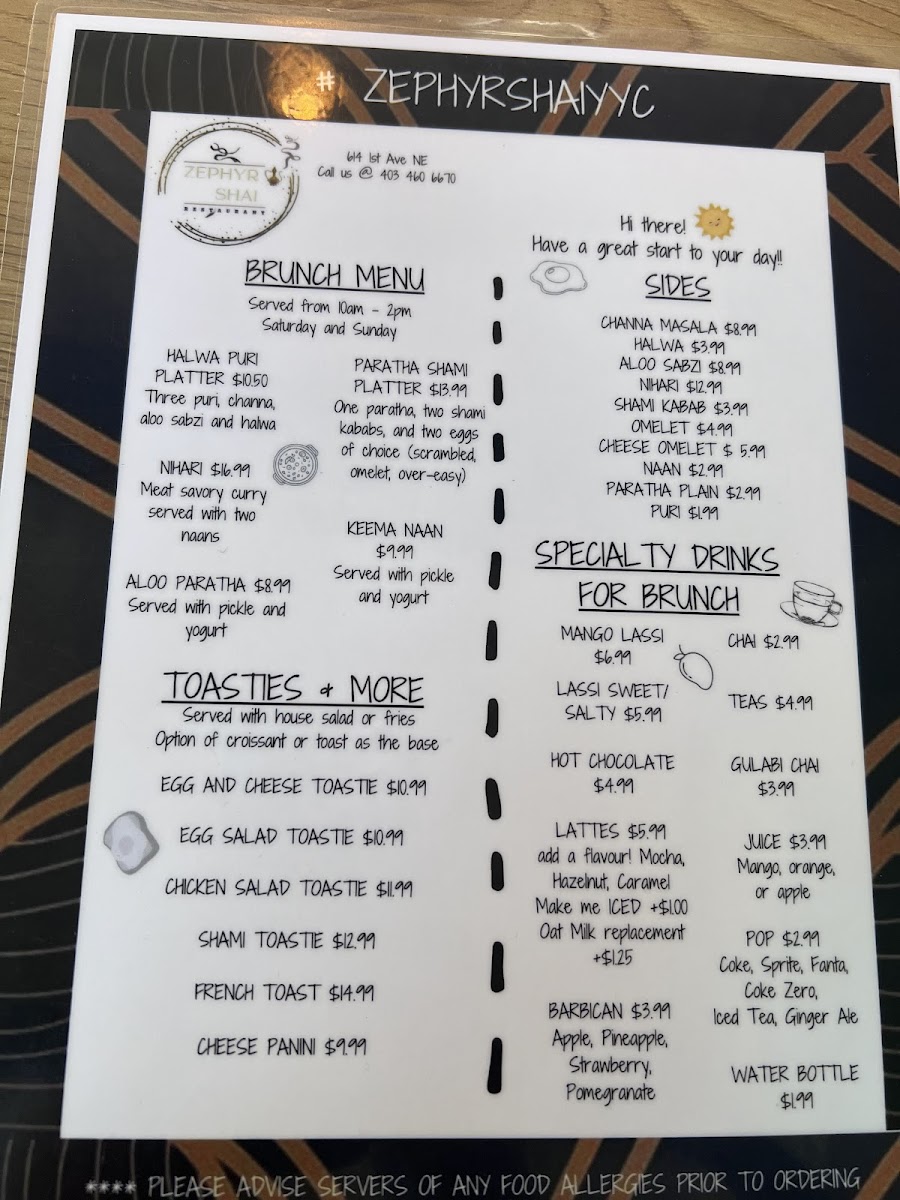 # ZEPHYRSHAIYYC
ZEPHYR
SHAI
RESTAURANT
614 1st Ave NE
Call us @ 403 460 6670
Hi there!
Have a great start to your day!!
BRUNCH MENU
Served from 10am - 2pm
Saturday and Sunday
HALWA PURI
PLATTER $10.50
Three puri, channa,
aloo sabzi and halwa
NIHARI $16.99
Meat savory curry
served with two
naans
ALOO PARATHA $8.99
Served with pickle and
yogurt
PARATHA SHAMI
PLATTER $13.99
One paratha, two shami
kababs, and two eggs
of choice (scrambled,
omelet, over-easy)
KEEMA NAAN
$9.99
Served with pickle
and yogurt
TOASTIES & MORE
Served with house salad or fries
Option of croissant or toast as the base
EGG AND CHEESE TOASTIE $10.99
EGG SALAD TOASTIE $10.99
CHICKEN SALAD TOASTIE $11.99
SHAMI TOASTIE $12.99
FRENCH TOAST $14.99
CHEESE PANINI $9.99
SIDES
CHANNA MASALA $8.99
HALWA $3.99
ALOO SABZI $8.99
NIHARI $12.99
SHAMI KABAB $3.99
OMELET $4.99
CHEESE OMELET $ 5.99
NAAN $2.99
PARATHA PLAIN $2.99
PURI $1.99
SPECIALTY DRINKS
FOR BRUNCH
MANGO LASSI
$6.99
LASSI SWEET/
SALTY $5.99
HOT CHOCOLATE
$4.99
LATTES $5.99
add a flavour! Mocha,
Hazelnut, Caramel
Make me ICED +$1.00
Oat Milk replacement
+$1.25
BARBICAN $3.99
Apple, Pineapple,
Strawberry,
Pomegranate
CHAI $2.99
TEAS $4.99
GULABI CHAI
$3.99
JUICE $3.99
Mango, orange,
or apple
POP $2.99
Coke, Sprite, Fanta,
Coke Zero,
Iced Tea, Ginger Ale
WATER BOTTLE
$1.99
**** PLEASE ADVISE SERVERS OF ANY FOOD ALLERGIES PRIOR TO ORDERING